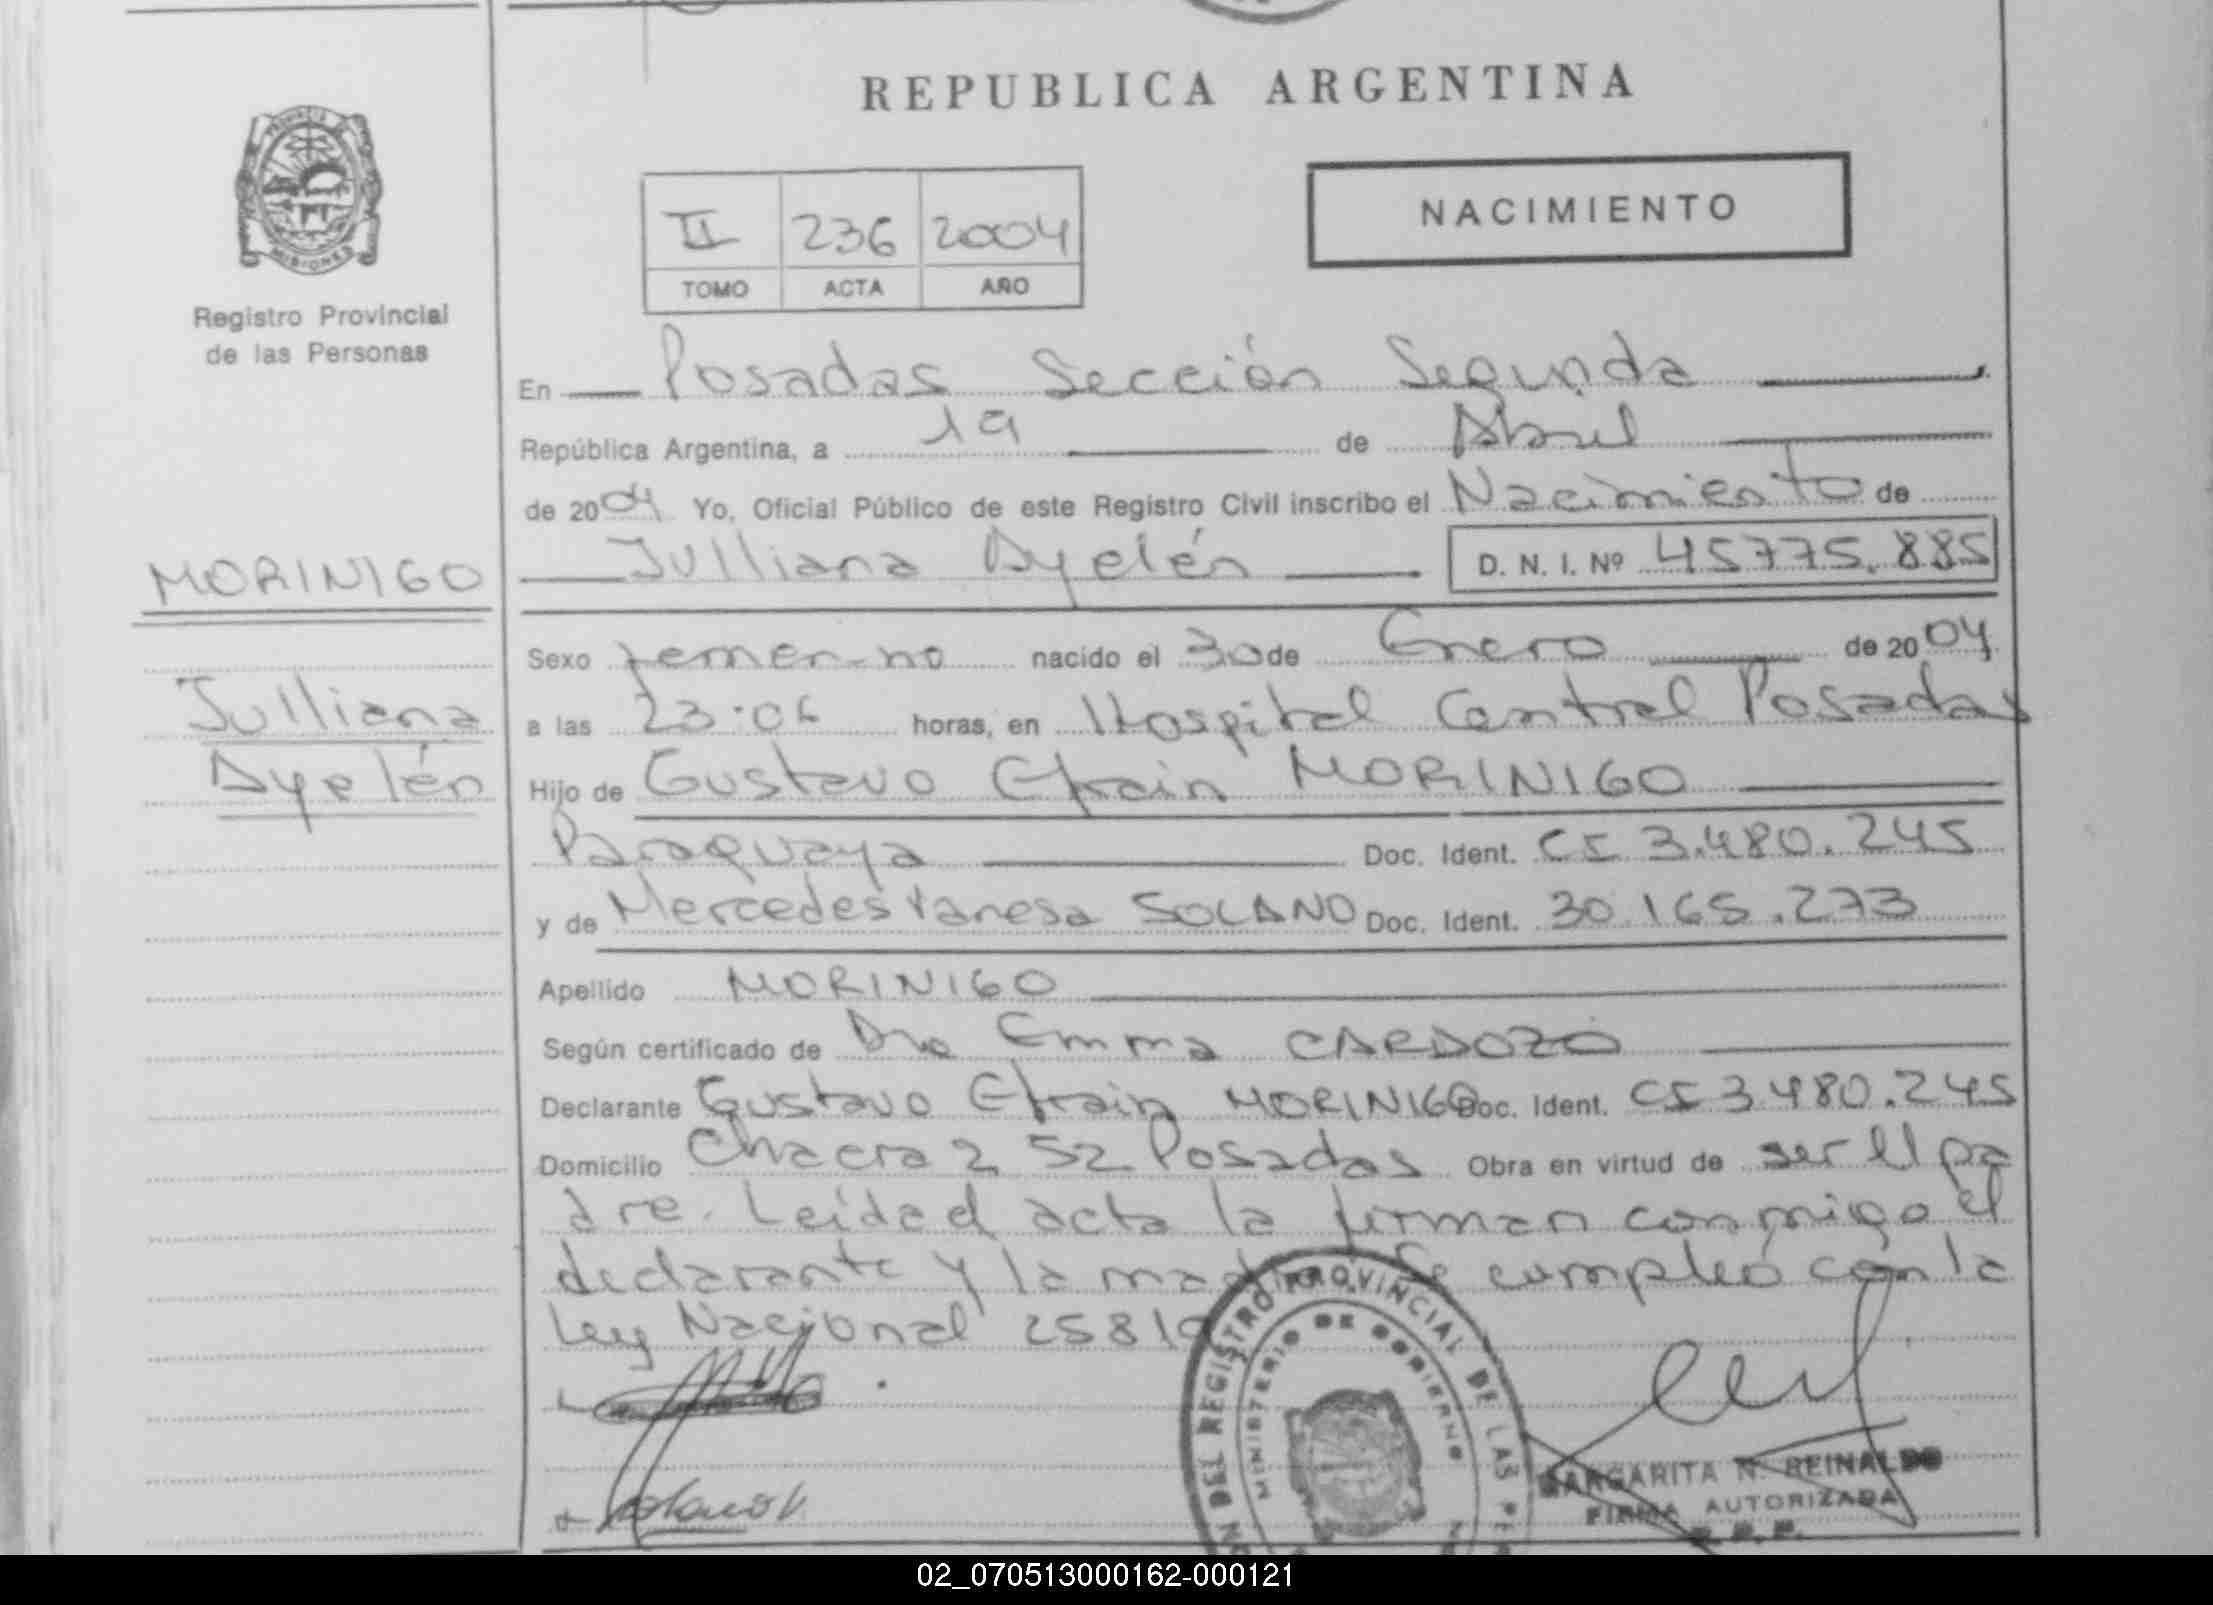 REPUBLICA ARGENTINA
PROVINCIA DE
MISIONES
Registro Provincial
de las Personas
NACIMIENTO
II 236 2004
TOMO ACTA AÑO
En Posadas Sección Segunda
República Argentina, a 19 de Abril
de 2004 Yo, Oficial Público de este Registro Civil inscribo el Nacimiento de
MORINIGO
Julliana Ayelén D. N. I. Nº 45775.885
Sexo femenino nacido el 30 de Enero de 2004
Julliana
Ayelén
a las 23:06 horas, en Hospital Central Posadas
Hijo de Gustavo Efrain MORINIGO
Paraguaya Doc. Ident. CI 3.480.245
y de Mercedes Vanesa SOLANO Doc. Ident. 30.165.273
Apellido MORINIGO
Según certificado de Dra Emma CARDOZO
Declarante Gustavo Efrain MORINIGO Doc. Ident. CI 3.480.245
Domicilio Chacra 252 Posadas Obra en virtud de ser el pa
dre. Leída el acta la firman conmigo el
declarante y la madre. Se cumpleó con la
Ley Nacional 25819
DEL REGISTRO PROVINCIAL DE LAS PE
MINISTERIO DE GOBIERNO
Solano V.
MARGARITA N. REINALDO
FIRMA AUTORIZADA
R. P. P.
02_070513000162-000121